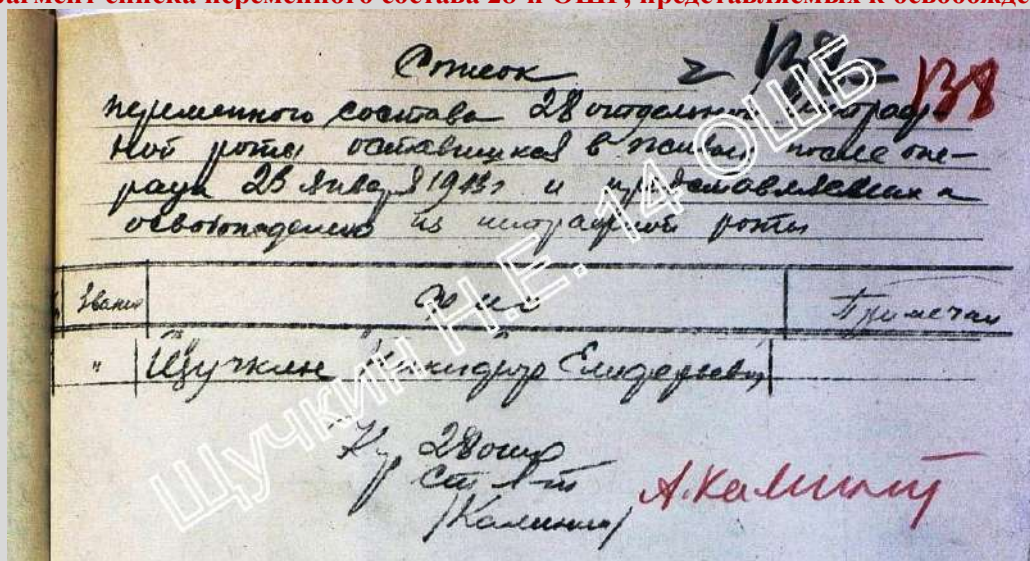 Фрагмент списка переменного состава 28-й ОШР, представляемых к освобожде
Список
138
138
переменного состава 28 отдельной штраф
ной роты оставшихся в живых после опе-
рации 23 января 1943 г и представляемых к
освобождению из штрафной роты
Звание Ф и о Примечан
" Щучкин Никандр Елиферьевич
Ку 28 ошр
ст л-т
/Калинин/
А.Калинин
Щучкин Н.Е. 14 ОШБ